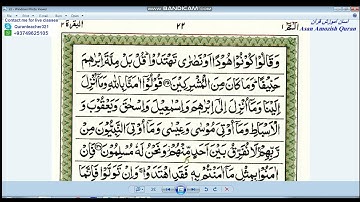 23 - Windows Photo Viewer
BANDICAM
Contact me for live classes
Quranteacher321
+93749625105
آسان آموزش قرآن
Asan Amozish Quran
البقرة ٢
٢٢
وَقَالُوا كُونُوا هُودًا أَوْ نَصَارَىٰ تَهْتَدُوا قُلْ بَلْ مِلَّةَ إِبْرَاهِيمَ
حَنِيفًا وَمَا كَانَ مِنَ الْمُشْرِكِينَ قُولُوا آمَنَّا بِاللَّهِ وَمَا أُنْزِلَ
إِلَيْنَا وَمَا أُنْزِلَ إِلَىٰ إِبْرَاهِيمَ وَإِسْمَاعِيلَ وَإِسْحَاقَ وَيَعْقُوبَ وَ
الْأَسْبَاطِ وَمَا أُوتِيَ مُوسَىٰ وَعِيسَىٰ وَمَا أُوتِيَ النَّبِيُّونَ مِنْ
رَبِّهِمْ لَا نُفَرِّقُ بَيْنَ أَحَدٍ مِنْهُمْ وَنَحْنُ لَهُ مُسْلِمُونَ فَإِنْ
آمَنُوا بِمِثْلِ مَا آمَنْتُمْ بِهِ فَقَدِ اهْتَدَوْا وَإِنْ تَوَلَّوْا فَإِنَّمَا